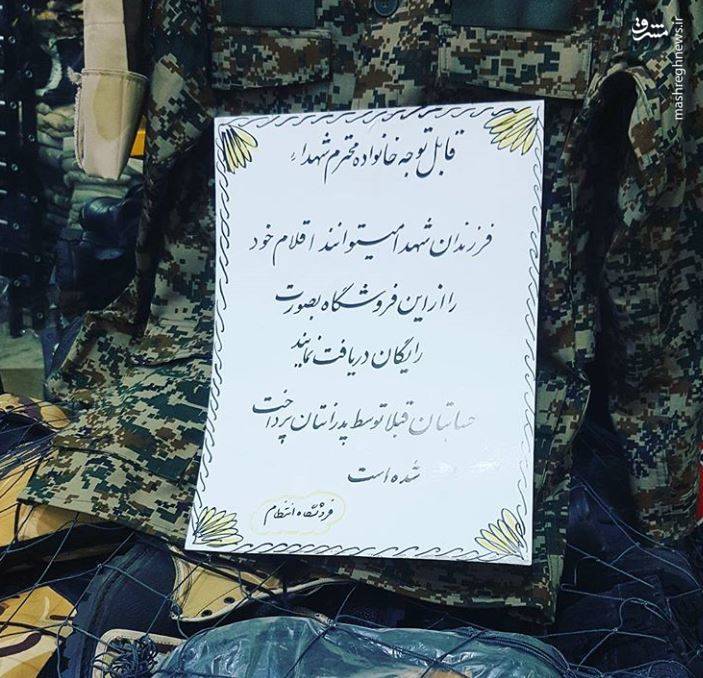 مشرق
mashreghnews.ir
قابل توجه خانواده محترم شهداء
فرزندان شهدا میتوانند اقلام خود
را از این فروشگاه بصورت
رایگان دریافت نمایند
حسابتان قبلا توسط پدرانتان پرداخت
شده است
فروشگاه انتظام